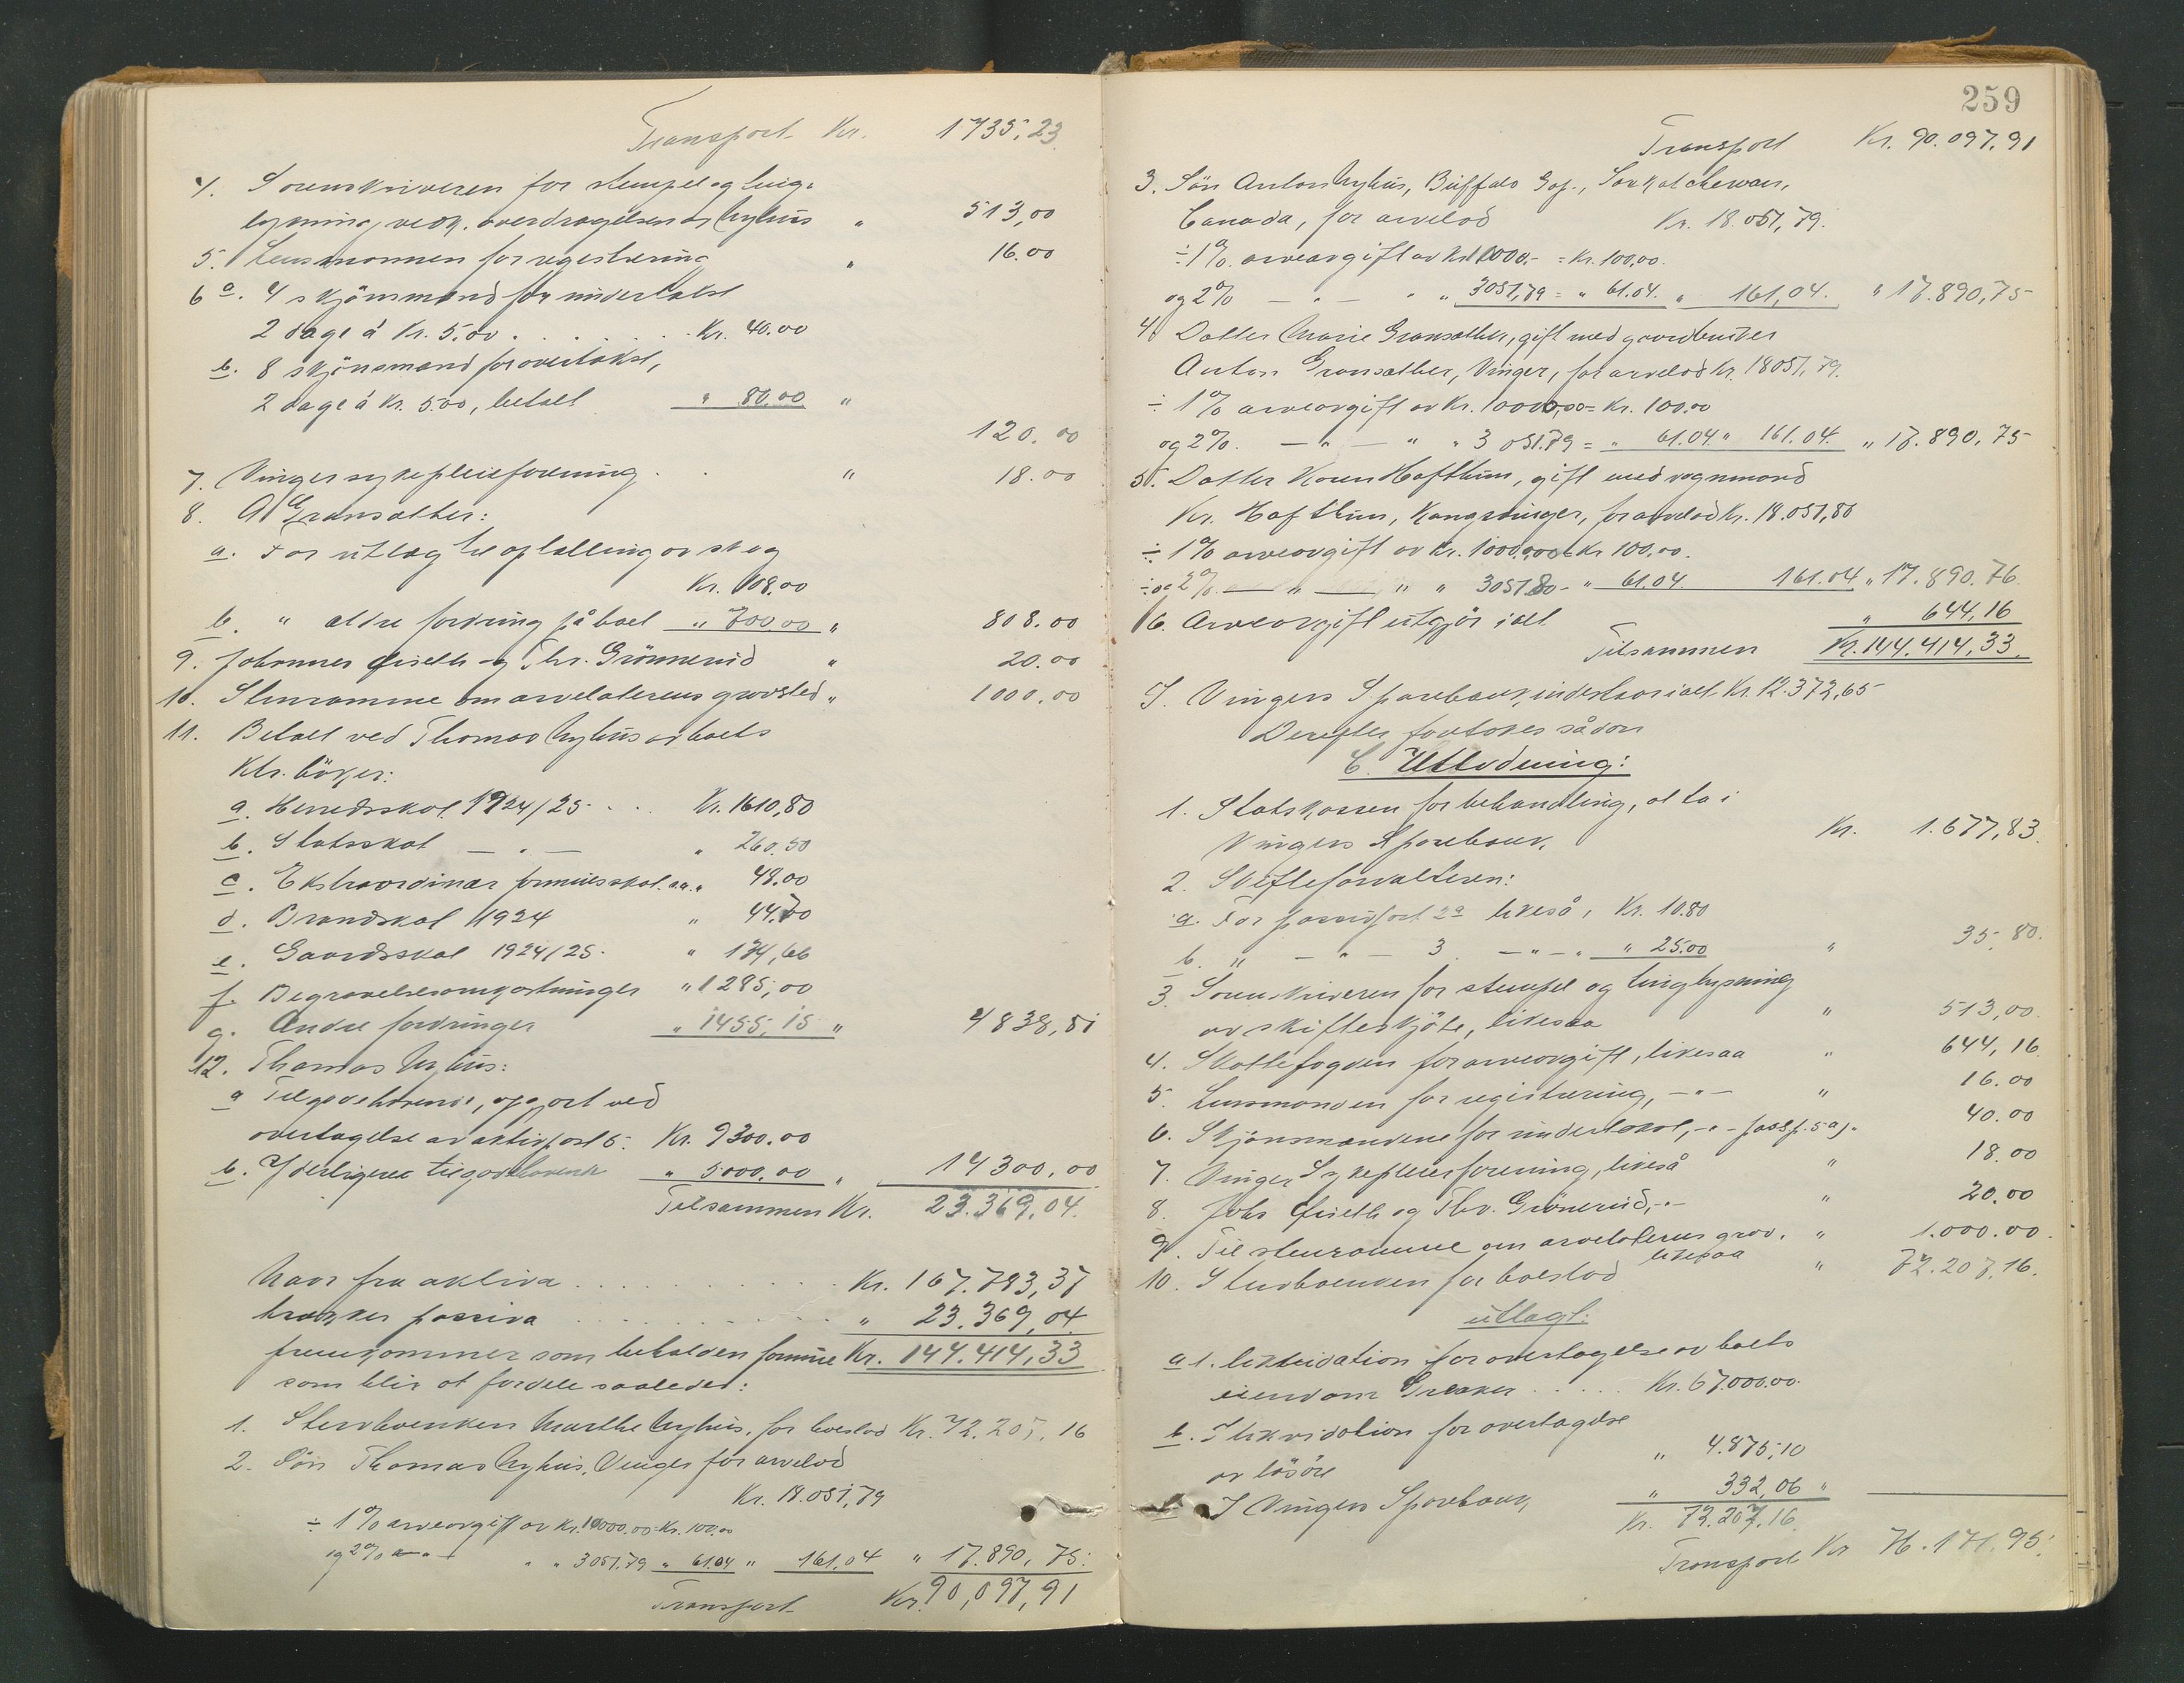 Transport Kr. 1735,23
4. Sorenskriveren for stempel og ting-
lysning vedk. overdragelsen av Nyhus " 513,00
5. Lensmannen for registrering " 16.00
6 a. 4 skjönsmænd for undertakst
2 dage á Kr. 5.00 . . . . . Kr. 40.00
b. 8 skjönsmænd for overtakst,
2 dage á Kr. 5.00, betalt " 80.00 "
120.00
7. Vinger sykepleieforening . . " 18.00
8. A. Gransæther:
a. For utlæg til optælling av skog
Kr. 108.00
b. " ældre fordring på boet " 700.00 " 808.00
9. Johannes Friseth og Thr. Grönnerud " 20.00
10. Stenramme om arvelaterens gravsted " 1000.00
11. Betalt ved Thomas Nyhus av boets
Ktr. böker:
a. Herredsskat 1924/25 . . . Kr. 1610,80
b. Statsskat — " — " 260.50
c. Ekstraordinær formuesskat. " 48.00
d. Brandskat 1924 " 44.70
e. Gaardsskat 1924/25 " 134,66
f. Begravelsesomkostninger " 1285,00
g. Andre fordringer " 1455,15 " 4838,81
12. Thomas Nyhus:
a Tilgodehavende, opgjort ved
overtagelse av aktivpost 5. Kr. 9300.00
b. Yderligere tilgodehavende " 5000.00 " 14300,00
Tilsammen Kr. 23.369,04.
Naar fra aktiva . . . . . . . . . Kr. 167.783,37
trækkes passiva . . . . . . . . . " 23.369,04
fremkommer som beholden formue Kr. 144.414,33
som blir at fordele saaledes:
1. Stervboenken Marthe Nyhus, for boeslod Kr. 72.207,16
2. Sön Thomas Nyhus, Vinger for arvelod
Kr. 18.051,79
÷ 1% arveavgift av Kr. 10000.00 = Kr. 100.00
og 2% — " — " " 3051.79 " 61.04 " 161,04 " 17.890,75.
Transport Kr. 90,097,91
259
Transport Kr. 90.097,91
3. Sön Anton Nyhus, Buffalo Gap., Saskatchewan,
Canada, for arvelod Kr. 18.051,79.
÷ 1% arveavgift av Kr. 10000.- = Kr. 100,00.
og 2% — " — " " 3051,79 = " 61.04. " 161,04. " 17.890,75
4. Datter Marie Gransæther, gift med gaardbruker
Anton Gransæther, Vinger, for arvelod Kr. 18051,79.
÷ 1% arveavgift av Kr. 10000,00 = Kr. 100.00
og 2%. — " — " " 3051.79 = " 61.04. " 161.04. " 17.890,75
5. Datter Karen Hafthun, gift med vognmand
Kr. Hafthun, Kongsvinger, for arvelod Kr. 18.051,80
÷ 1% arveavgift av Kr. 10000.00 = Kr 100,00.
÷ og 2%. — " — " " 3051.80 - " 61.04. 161.04 " 17.890.76.
6. Arveavgift utgjör ialt " 644,16
Tilsammen Kr. 144.414,33.
I. Vingers Sparebank, indestaar ialt Kr. 12.372,65
Derefter foretokes sådan
C. Utlodning:
1. Statskassen for behandling, at ta i
Vingers Sparebank. Kr. 1.677,83.
2. Skifteforvalteren:
a. For passivpost 2a likeså, Kr. 10.80
b. " — " — 3 — " — " " 25.00 " 35,80.
3. Sorenskriveren for stempel og tinglysning
av skifteskjöte, likesaa " 513,00.
4. Skattefogden for arveavgift, likesaa " 644,16.
5. Lensmanden for registrering, — " — " 16.00
6. Skjönsmændene for undertakst, - " - pass.p. 5 a) " 40.00
7. Vinger Sykepleierforening, likeså " 18.00
8. Johs Friseth og Thv. Grönnerud, - " - " 20.00
9. Til stenramme om arvelaterens grav. " 1.000.00.
likesaa
10. Stervboenken for boeslod " 72.207,16.
utlagt:
a 1. likvidation for overtagelse av boets
eiendom Greaker . . . . . Kr. 67.000.00.
b. I likvidation for overtagelse
av lösöre " 4.875,10
I Vingers Sparebank, " 332,06 "
Kr. 72.207,16.
Transport Kr 76.171.95.